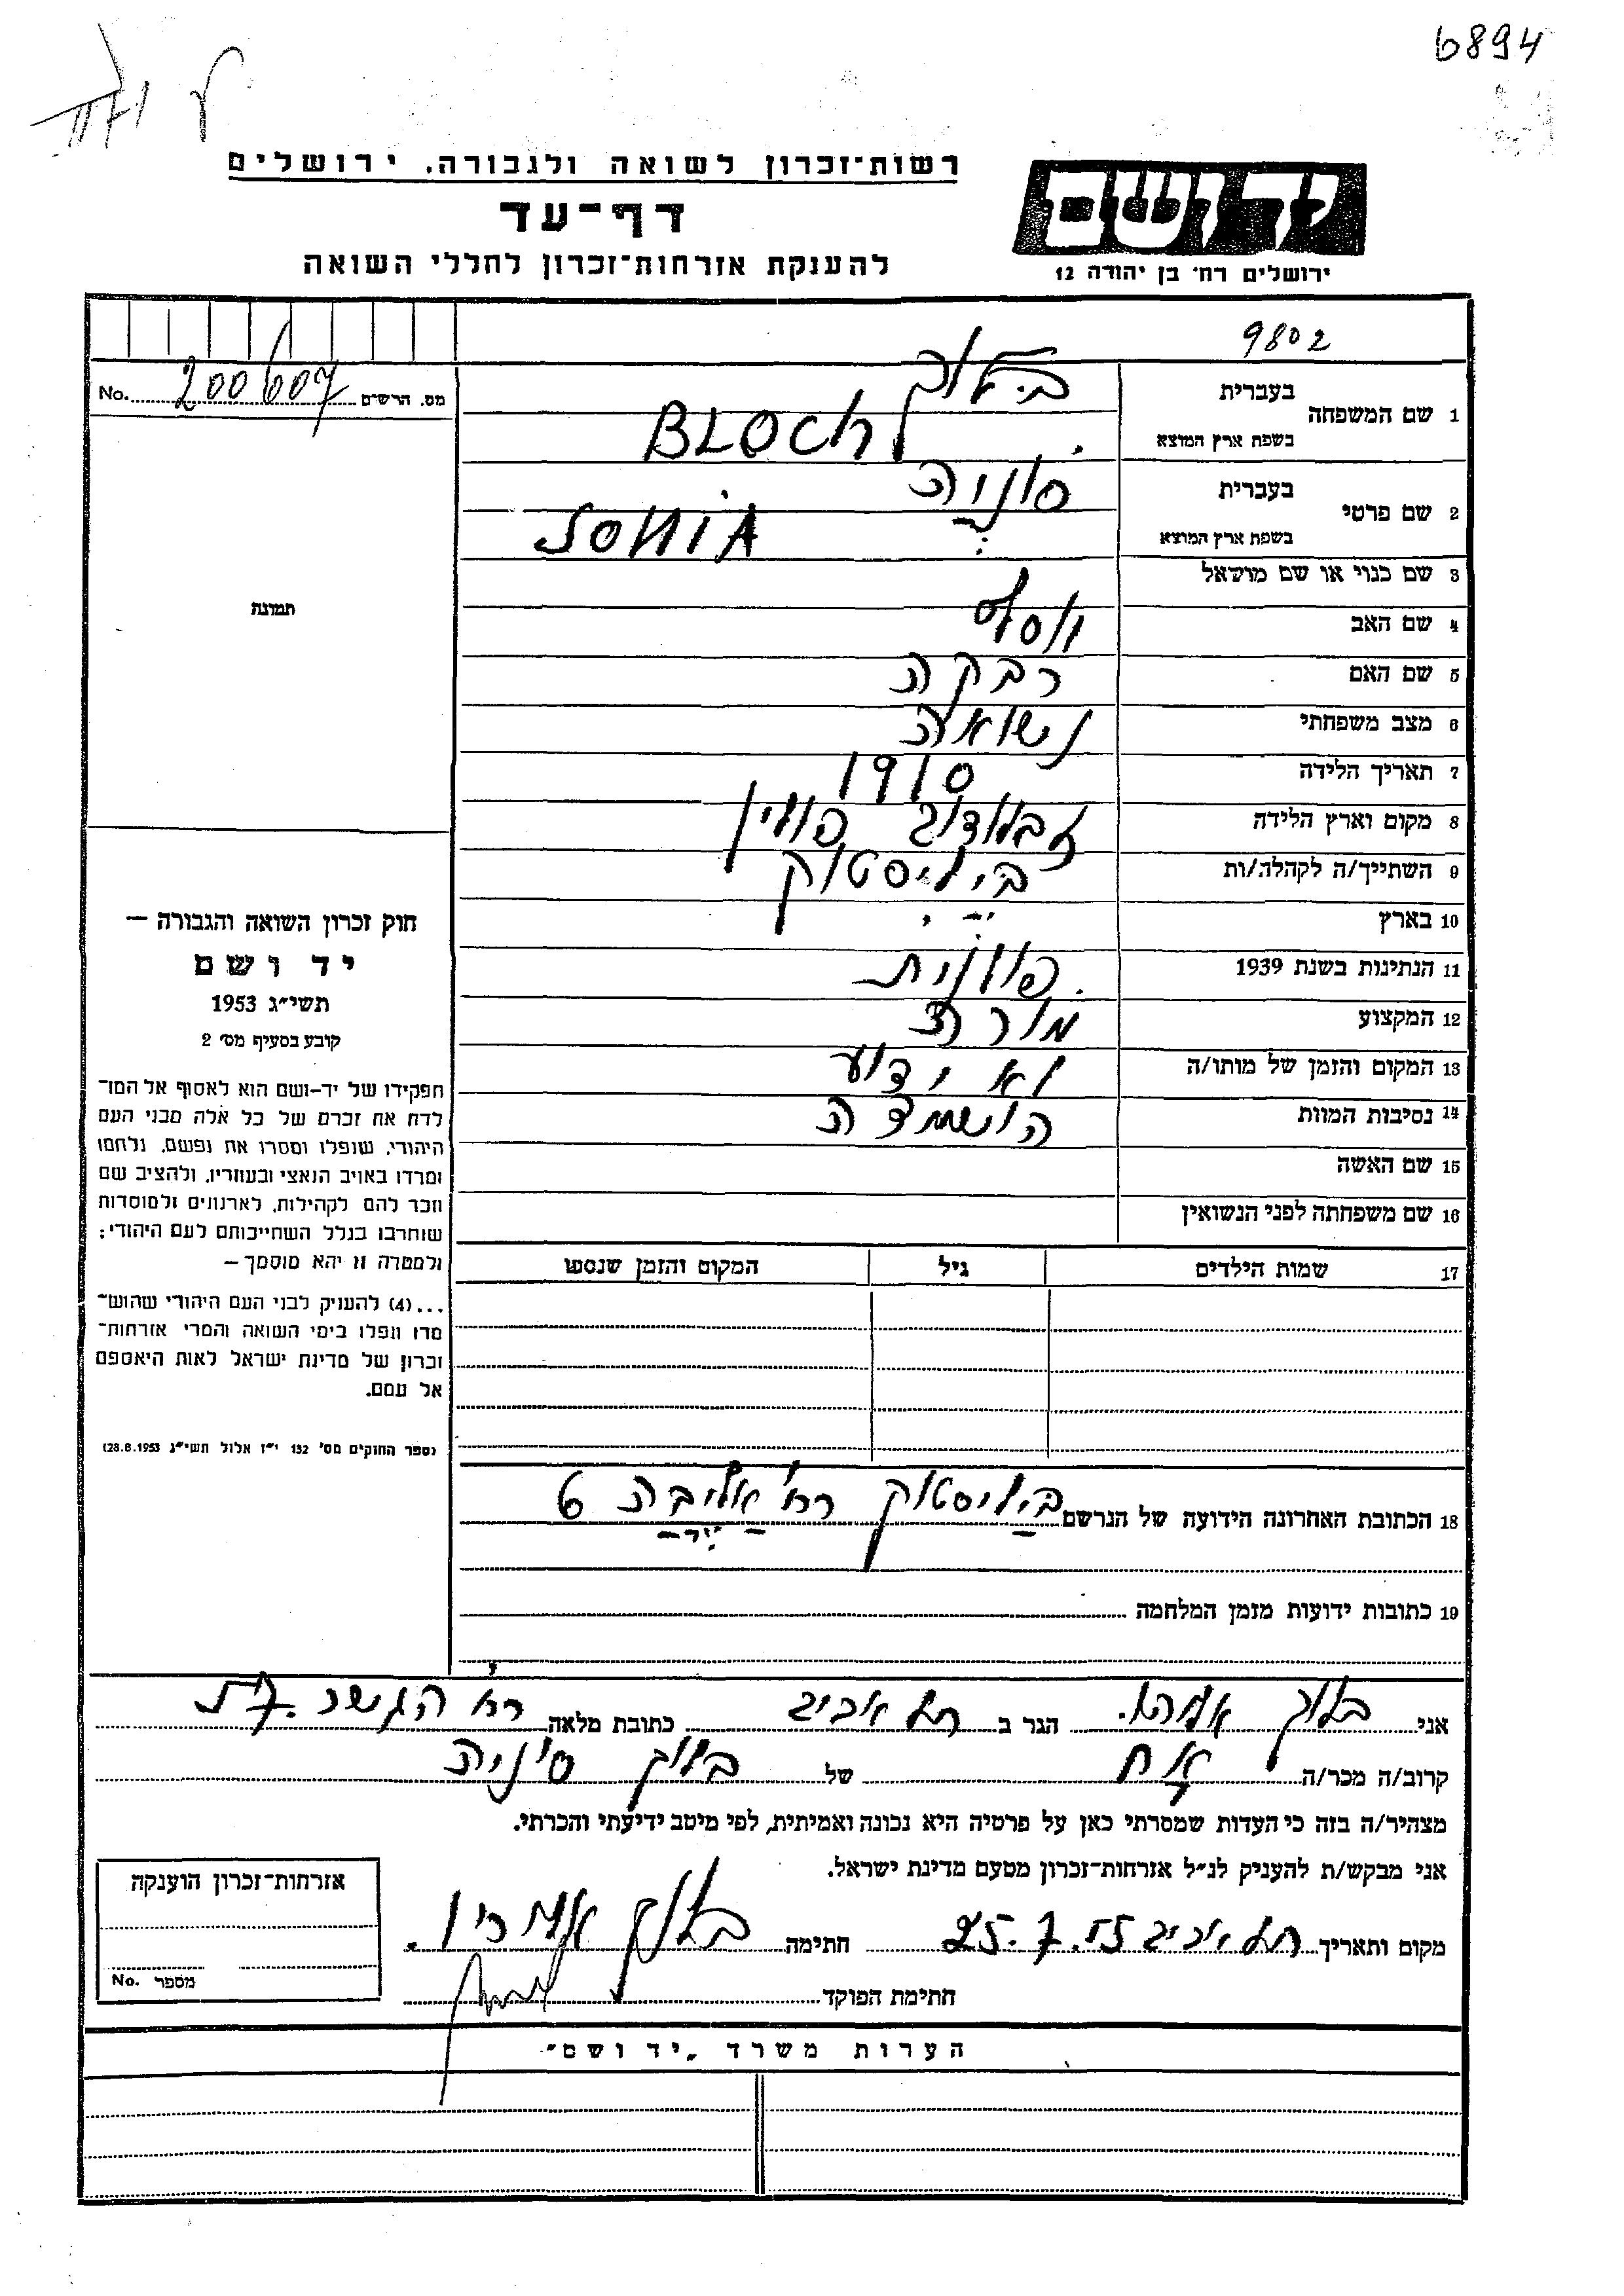 6894
רשות־זכרון לשואה ולגבורה. ירושלים
יד ושם
דף־עד
להענקת אזרחות־זכרון לחללי השואה
ירושלים רח׳ בן יהודה 12
9802
No. 200607 מס. הרשים
1 שם המשפחה בעברית בלוך
בשפת ארץ המוצא BLOCH
2 שם פרטי בעברית סוניה
בשפת ארץ המוצא SONIA
3 שם כנוי או שם מושאל
4 שם האב יוסף
5 שם האם רבקה
6 מצב משפחתי נשואה
7 תאריך הלידה 1910
8 מקום וארץ הלידה זבלודוב פולין
9 השתייך/ה לקהלה/ות ביליסטוק
10 בארץ
11 הנתינות בשנת 1939 פולנית
12 המקצוע מורה
13 המקום והזמן של מותו/ה לא ידוע
14 נסיבות המוות הושמדה
15 שם האשה
16 שם משפחתה לפני הנשואין
17 שמות הילדים גיל המקום והזמן שנספו
תמונה
חוק זכרון השואה והגבורה —
יד ושם
תשי״ג 1953
קובע בסעיף מס׳ 2
תפקידו של יד-ושם הוא לאסוף אל המו־
לדת את זכרם של כל אלה מבני העם
היהודי, שנפלו ומסרו את נפשם, נלחמו
ומרדו באויב הנאצי ובעוזריו, ולהציב שם
וזכר להם לקהילות, לארגונים ולמוסדות
שנחרבו בגלל השתייכותם לעם היהודי;
ולמטרה זו יהא מוסמך —
...(4) להעניק לבני העם היהודי שהוש־
מדו ונפלו בימי השואה והמרי אזרחות־
זכרון של מדינת ישראל לאות היאספם
אל עמם.
(ספר החוקים מס׳ 132 י״ז אלול תשי״ג 28.8.1953)
18 הכתובת האחרונה הידועה של הנרשם ביליסטוק רח׳ 6
19 כתובות ידועות מזמן המלחמה
אני בלוך אהרן. הגר ב תל אביב כתובת מלאה רח׳ הגשר 7 ת
קרוב/ה מכר/ה אח של בלוך סוניה
מצהיר/ה בזה כי העדות שמסרתי כאן על פרטיה היא נכונה ואמיתית, לפי מיטב ידיעתי והכרתי.
אני מבקש/ת להעניק לנ״ל אזרחות־זכרון מטעם מדינת ישראל.
מקום ותאריך תל אביב 25.7.55 חתימה בלוך אהרן.
חתימת הפוקד
אזרחות־זכרון הוענקה
No. מספר
הערות משרד „יד ושם״